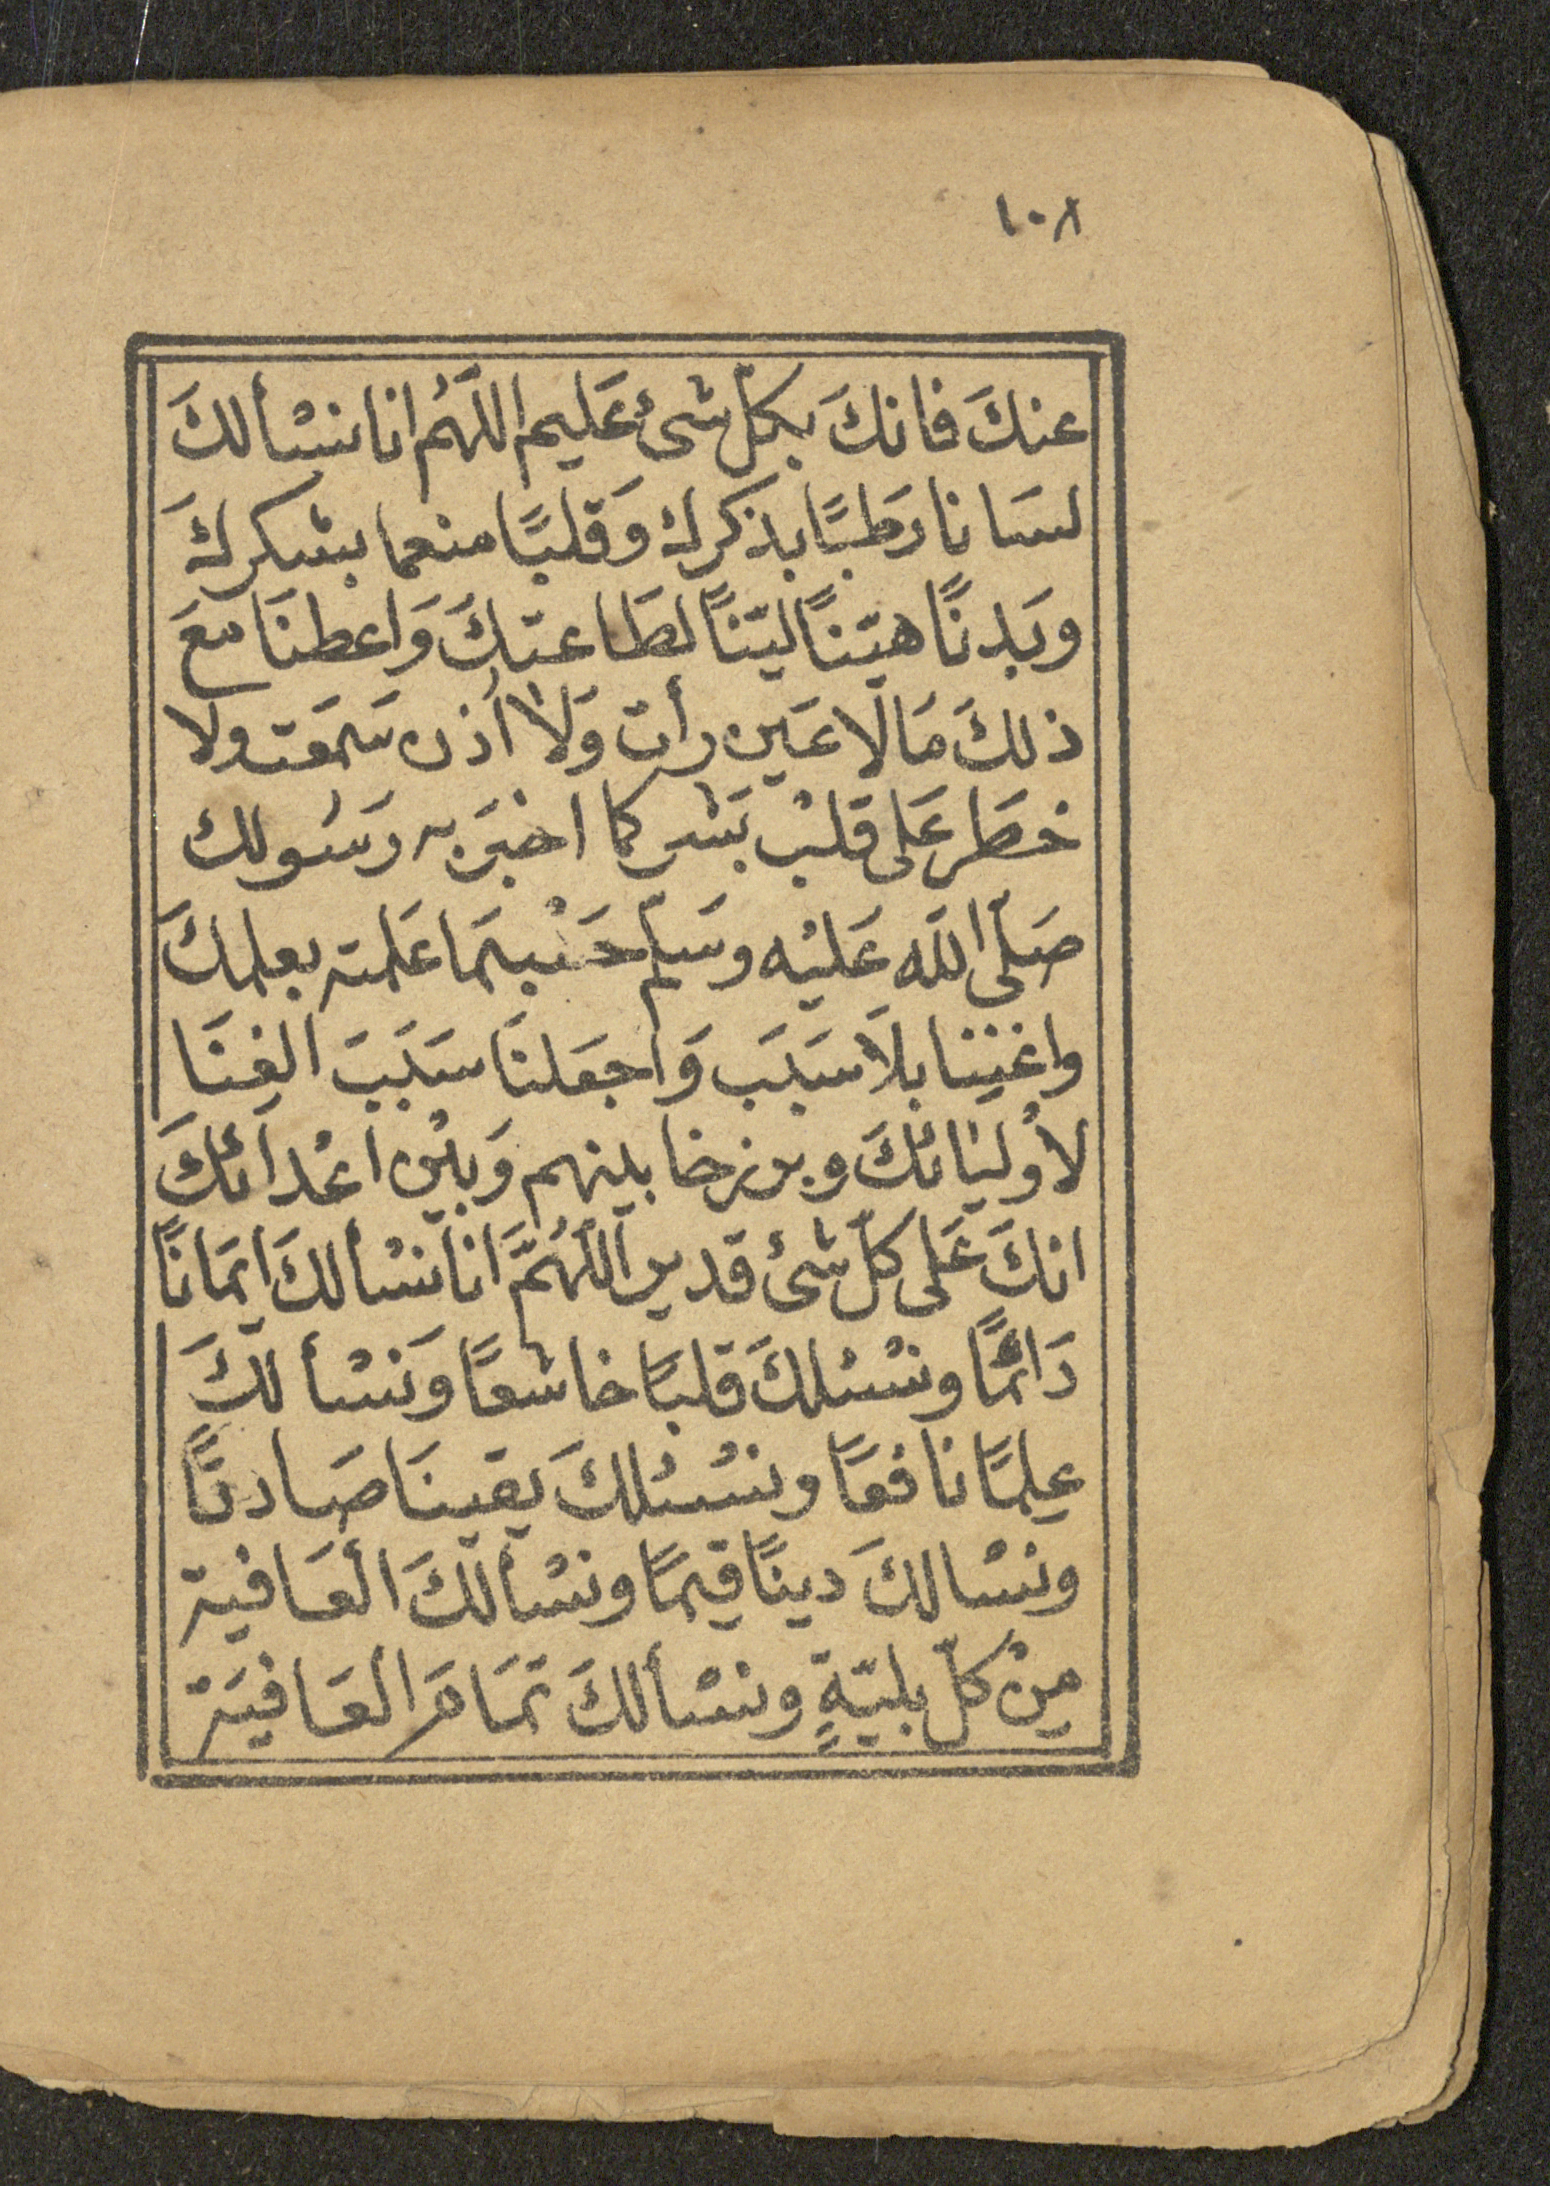 ١٠٨
عنكَ فانكَ بكلّ شئ عَليم اللّهُم انا نسْألكَ
لسَانا رَطبًا بذكرك وَقلبًا منعما بشكركَ
وبَدنًا هيّنًا ليّنًا لطَاعتكَ وَاعطنَا معَ
ذلكَ مَا لَا عَين رأت وَلَا اُذن سَمعَت ولا
خطَر عَلى قلبْ بَشر كما اخبَر به رَسُولك
صَلّى اللّه عَليْه وسَلّم حَسْبمَا عَلمته بعلمكَ
واغننا بلَا سَبَب وَاجعَلنَا سَبَبَ الغنَا
لأوْليَائكَ وبرزخا بينهم وَبيْن اعْدَائكَ
انكَ عَلى كلّ شئ قدير اللّهُمَّ انا نسْألكَ ايمَانًا
دَائمًا ونسْئلكَ قلبًا خاشعًا وَنسْألكَ
عِلمًا نافعًا ونسْئلكَ يقينَا صَادقًا
ونسْالكَ دينًا قيمًا ونسْألكَ العَافية
مِنْ كلّ بليّةٍ ونسْألكَ تمَامَ العَافيَة